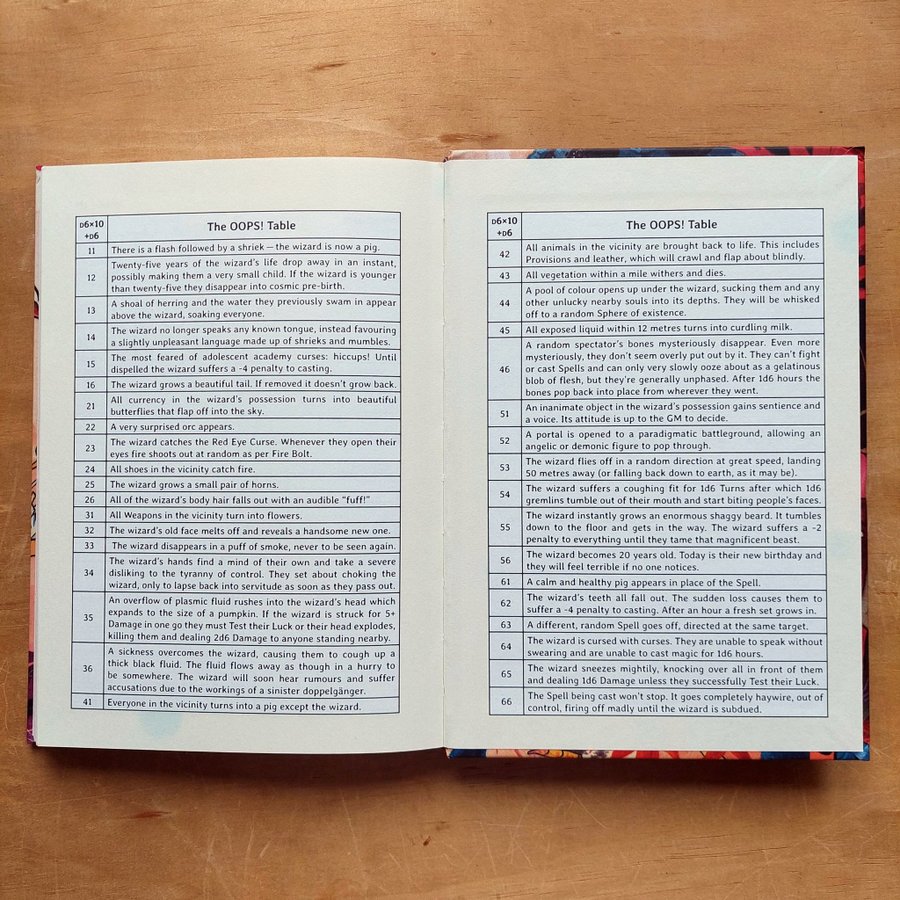 D6×10 The OOPS! Table
+D6
11 There is a flash followed by a shriek — the wizard is now a pig.
Twenty-five years of the wizard's life drop away in an instant,
12 possibly making them a very small child. If the wizard is younger
than twenty-five they disappear into cosmic pre-birth.
13 A shoal of herring and the water they previously swam in appear
above the wizard, soaking everyone.
14 The wizard no longer speaks any known tongue, instead favouring
a slightly unpleasant language made up of shrieks and mumbles.
15 The most feared of adolescent academy curses: hiccups! Until
dispelled the wizard suffers a -4 penalty to casting.
16 The wizard grows a beautiful tail. If removed it doesn't grow back.
21 All currency in the wizard's possession turns into beautiful
butterflies that flap off into the sky.
22 A very surprised orc appears.
23 The wizard catches the Red Eye Curse. Whenever they open their
eyes fire shoots out at random as per Fire Bolt.
24 All shoes in the vicinity catch fire.
25 The wizard grows a small pair of horns.
26 All of the wizard's body hair falls out with an audible "fuff!"
31 All Weapons in the vicinity turn into flowers.
32 The wizard's old face melts off and reveals a handsome new one.
33 The wizard disappears in a puff of smoke, never to be seen again.
The wizard's hands find a mind of their own and take a severe
34 disliking to the tyranny of control. They set about choking the
wizard, only to lapse back into servitude as soon as they pass out.
An overflow of plasmic fluid rushes into the wizard's head which
35 expands to the size of a pumpkin. If the wizard is struck for 5+
Damage in one go they must Test their Luck or their head explodes,
killing them and dealing 2d6 Damage to anyone standing nearby.
A sickness overcomes the wizard, causing them to cough up a
36 thick black fluid. The fluid flows away as though in a hurry to
be somewhere. The wizard will soon hear rumours and suffer
accusations due to the workings of a sinister doppelgänger.
41 Everyone in the vicinity turns into a pig except the wizard.
D6×10 The OOPS! Table
+D6
42 All animals in the vicinity are brought back to life. This includes
Provisions and leather, which will crawl and flap about blindly.
43 All vegetation within a mile withers and dies.
A pool of colour opens up under the wizard, sucking them and any
44 other unlucky nearby souls into its depths. They will be whisked
off to a random Sphere of existence.
45 All exposed liquid within 12 metres turns into curdling milk.
A random spectator's bones mysteriously disappear. Even more
mysteriously, they don't seem overly put out by it. They can't fight
46 or cast Spells and can only very slowly ooze about as a gelatinous
blob of flesh, but they're generally unphased. After 1d6 hours the
bones pop back into place from wherever they went.
51 An inanimate object in the wizard's possession gains sentience and
a voice. Its attitude is up to the GM to decide.
52 A portal is opened to a paradigmatic battleground, allowing an
angelic or demonic figure to pop through.
53 The wizard flies off in a random direction at great speed, landing
50 metres away (or falling back down to earth, as it may be).
54 The wizard suffers a coughing fit for 1d6 Turns after which 1d6
gremlins tumble out of their mouth and start biting people's faces.
The wizard instantly grows an enormous shaggy beard. It tumbles
55 down to the floor and gets in the way. The wizard suffers a -2
penalty to everything until they tame that magnificent beast.
56 The wizard becomes 20 years old. Today is their new birthday and
they will feel terrible if no one notices.
61 A calm and healthy pig appears in place of the Spell.
62 The wizard's teeth all fall out. The sudden loss causes them to
suffer a -4 penalty to casting. After an hour a fresh set grows in.
63 A different, random Spell goes off, directed at the same target.
64 The wizard is cursed with curses. They are unable to speak without
swearing and are unable to cast magic for 1d6 hours.
65 The wizard sneezes mightily, knocking over all in front of them
and dealing 1d6 Damage unless they successfully Test their Luck.
66 The Spell being cast won't stop. It goes completely haywire, out of
control, firing off madly until the wizard is subdued.